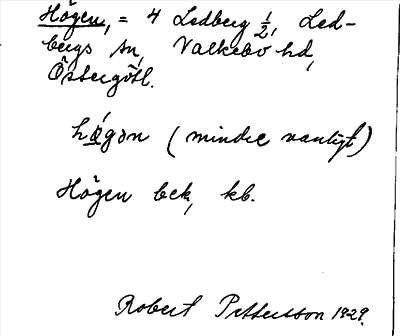 Högen, = 4 Ledberg 1/2, Led-
bergs sn, Valkebo hd,
Östergötl.
hǿgən (mindre vanligt)
Högen bek, kb.
Robert Pettersson 1929.